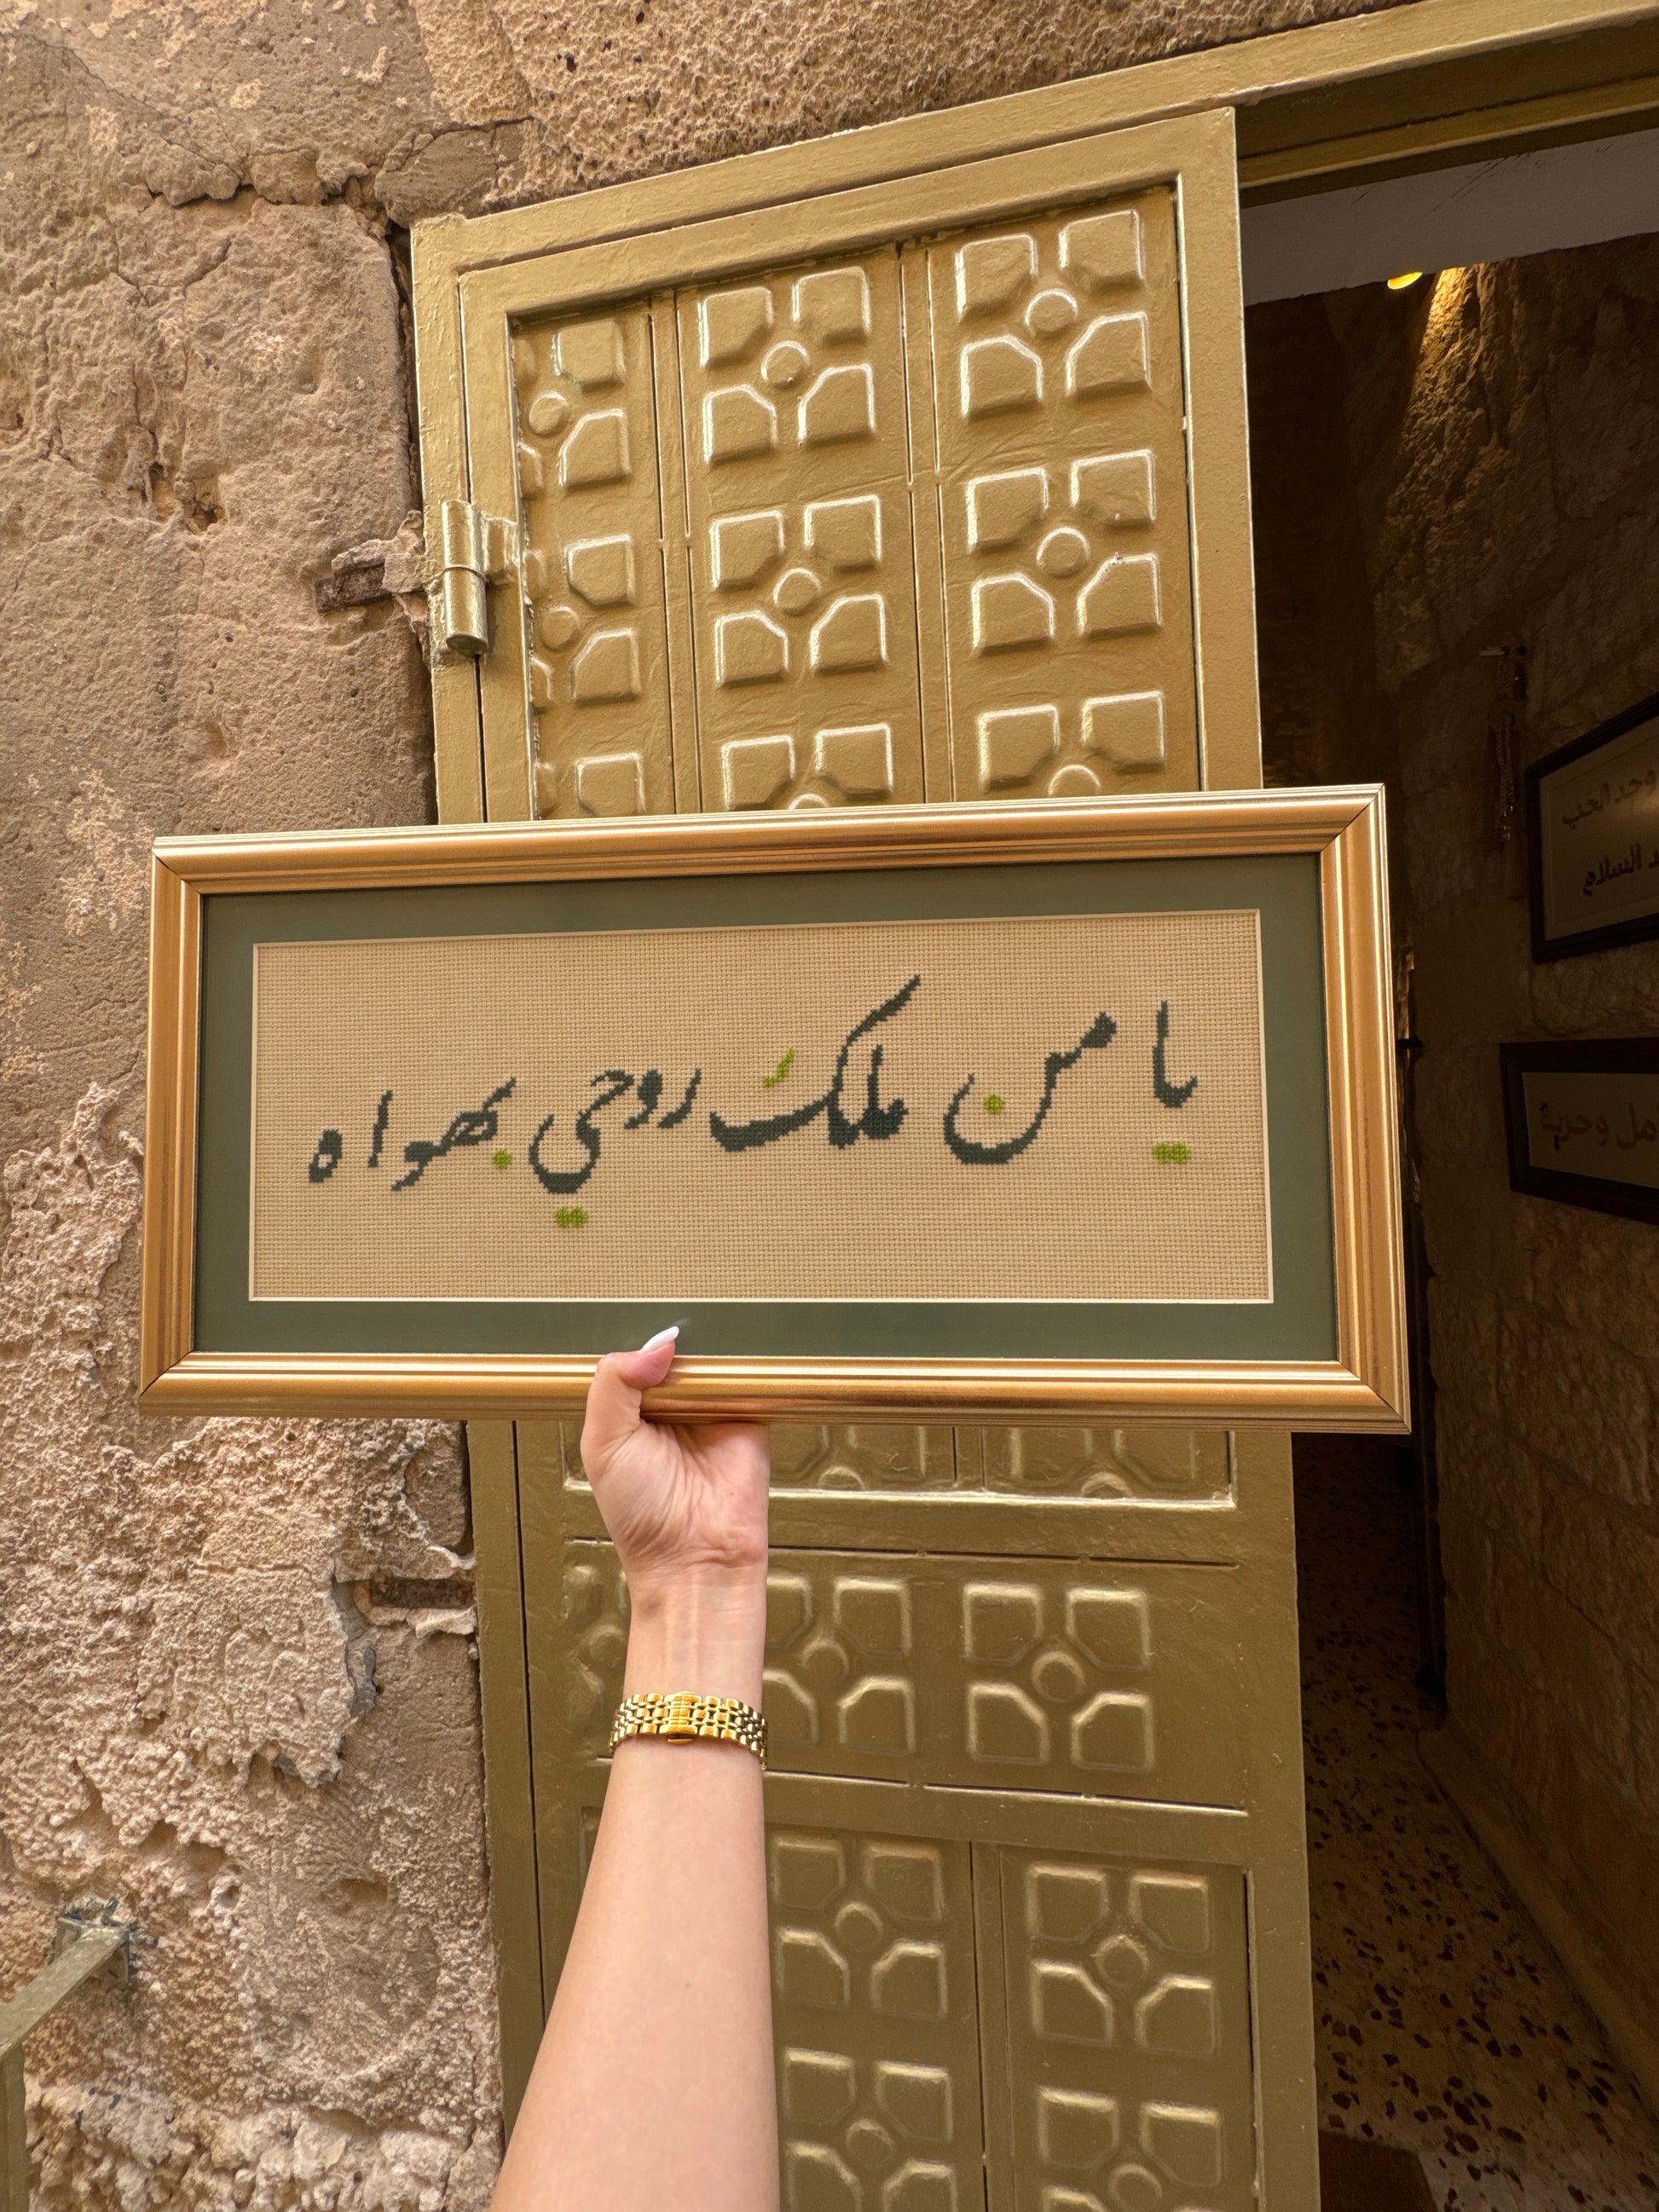 يا من ملك روحي بهواه
وجد الحب
السلام
وحرية